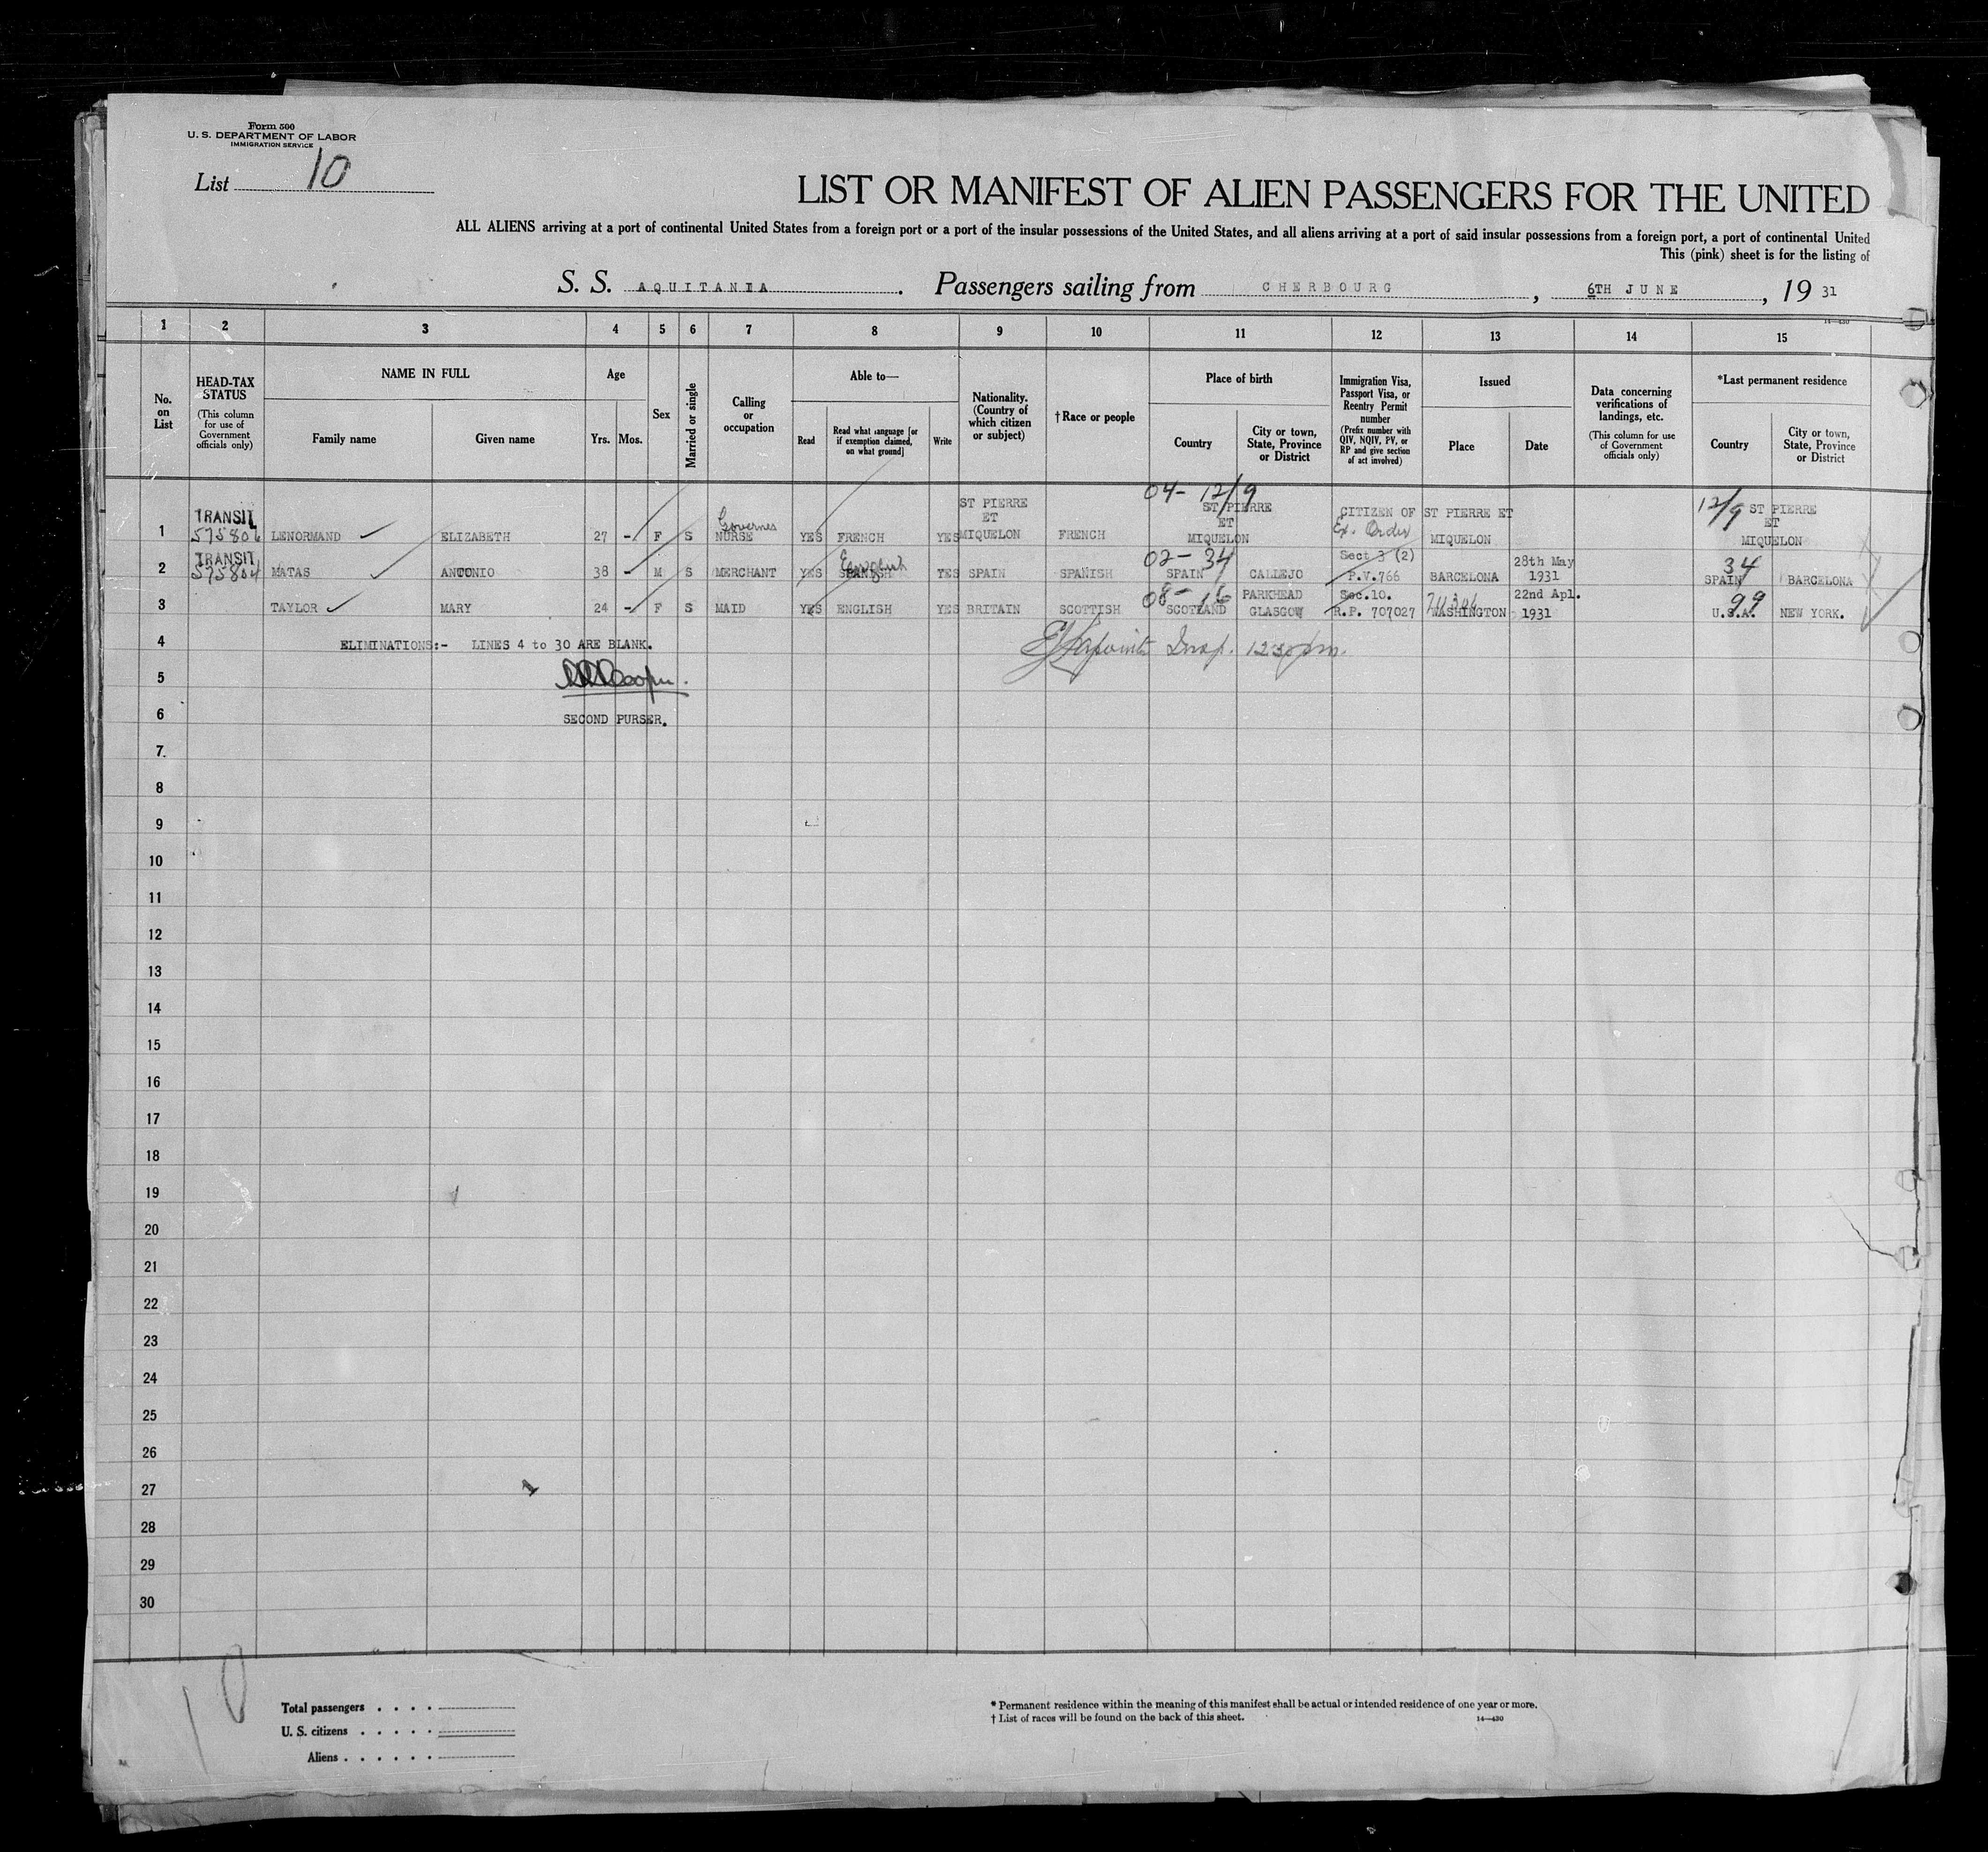 Form 500
U. S. DEPARTMENT OF LABOR
IMMIGRATION SERVICE
List 10
LIST OR MANIFEST OF ALIEN PASSENGERS FOR THE UNITED
ALL ALIENS arriving at a port of continental United States from a foreign port or a port of the insular possessions of the United States, and all aliens arriving at a port of said insular possessions from a foreign port, a port of continental United
This (pink) sheet is for the listing of
S. S. AQUITANIA. Passengers sailing from CHERBOURG, 6TH JUNE, 1931
14—430
1 2 3 4 5 6 7 8 9 10 11 12 13 14 15
No. on List
HEAD-TAX STATUS (This column for use of Government officials only)
NAME IN FULL
Family name Given name
Age
Yrs. Mos.
Sex
Married or single
Calling or occupation
Able to—
Read
Read what language [or if exemption claimed, on what ground]
Write
Nationality. (Country of which citizen or subject)
†Race or people
Place of birth
Country
City or town, State, Province or District
Immigration Visa, Passport Visa, or Reentry Permit number (Prefix number with QIV, NQIV, PV, or RP and give section of act involved)
Issued
Place Date
Data concerning verifications of landings, etc. (This column for use of Government officials only)
*Last permanent residence
Country
City or town, State, Province or District
04- 12/9 12/9
1 TRANSIT 575806 LENORMAND ELIZABETH 27 - F S Governes NURSE YES FRENCH YES ST PIERRE ET MIQUELON FRENCH ST PIERRE ET MIQUELON CITIZEN OF ST PIERRE ET MIQUELON Ex. Order ST PIERRE ET MIQUELON
02- 34 34
2 TRANSIT 575804 MATAS ANTONIO 38 - M S MERCHANT YES SPANISH YES SPAIN SPANISH SPAIN CALLEJO Sect 3 (2) P.V.766 BARCELONA 28th May 1931 SPAIN BARCELONA
08- 16 99
3 TAYLOR MARY 24 - F S MAID YES ENGLISH YES BRITAIN SCOTTISH SCOTLAND PARKHEAD GLASGOW Sec.10. R.P. 707027 WASHINGTON 22nd Apl. 1931 U.S.A. NEW YORK.
4 ELIMINATIONS:- LINES 4 to 30 ARE BLANK. Insp. 12:30 pm.
5
6 SECOND PURSER.
7
8
9
10
11
12
13
14
15
16
17
18
19
20
21
22
23
24
25
26
27
28
29
30
10
Total passengers . . . .
U. S. citizens . . . . .
Aliens . . . . . .
* Permanent residence within the meaning of this manifest shall be actual or intended residence of one year or more.
† List of races will be found on the back of this sheet.
14—430